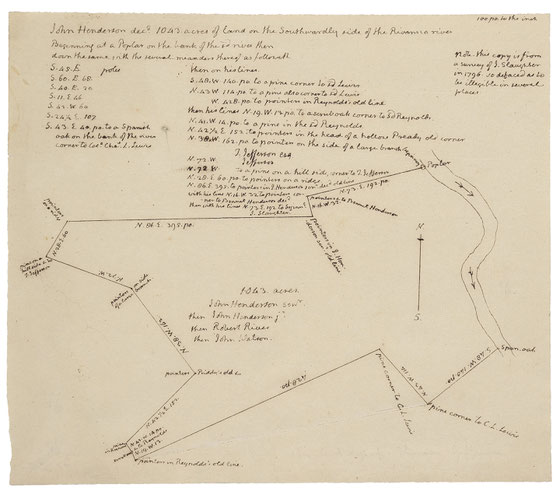 100. po to the inch
John Henderson decd. 1043 acres of land on the Southwardly side of the Rivanna river
Beginning at a Poplar on the bank of the sd river then
down the same, it's the several meanders thereof as followeth
S. 45. E poles
S. 60. E 68.
S. 40. E. 30
S. 11. E 46
S. 42. W. 60
S. 43. E 40. po to a Spanish
oak on the bank of the river
corner to Colo. Chas. L. Lewis
then on his lines.
S. 48. W 140. po to a pine corner to sd Lewis
N. 43. W 114 po to a pine also corner to sd Lewis
W. 428. po to pointers in Reynolds's old line
then his lines N. 19. W 13. po to a scrub oak corner to sd Reynolds.
N. 41. W. 14. po to a pine in the sd Reynolds
N. 42½ E. 152. to pointers in the head of a hollow Priddy's old corner
N. 38. W. 162. po to pointers on the side of a large branch
T. Jefferson Esq
N. 72. W. Jefferson
N. 72. W to a pine on a hill side, corner to T. Jefferson
N. 28. E. 60. po to pointers on a ridge.
N. 86. E 395. to pointers in J. Henderson
then with his lines N. 73. E. 192 to
J. Slaughter.
Note. this copy is from
a survey of J. Slaughter
in 1796. so defaced as to
be illegible in several
places
Poplar
N. 73. E. 192. po
pointers to Bennet Henderson
pointers in J. Hen
derson sen's old line
pointers
on a ridge
N. 28. E. 60
N. 86. E. 395. po.
pine on a
hill side co. to
T. Jefferson
N. 72. W
pointers on side
of a large branch
N
S.
1043 acres
John Henderson senr.
then John Henderson jr.
then Robert Rives
then John Watson.
N. 38. W. 162
pointers Priddy's old co.
N. 42½ E. 152.
428. po
N. 43. W. 114
pine corner to C. L. Lewis
S. 48. W. 140. po
Span. oak
pine corner to C. L. Lewis
pointers in Reynolds's old line.